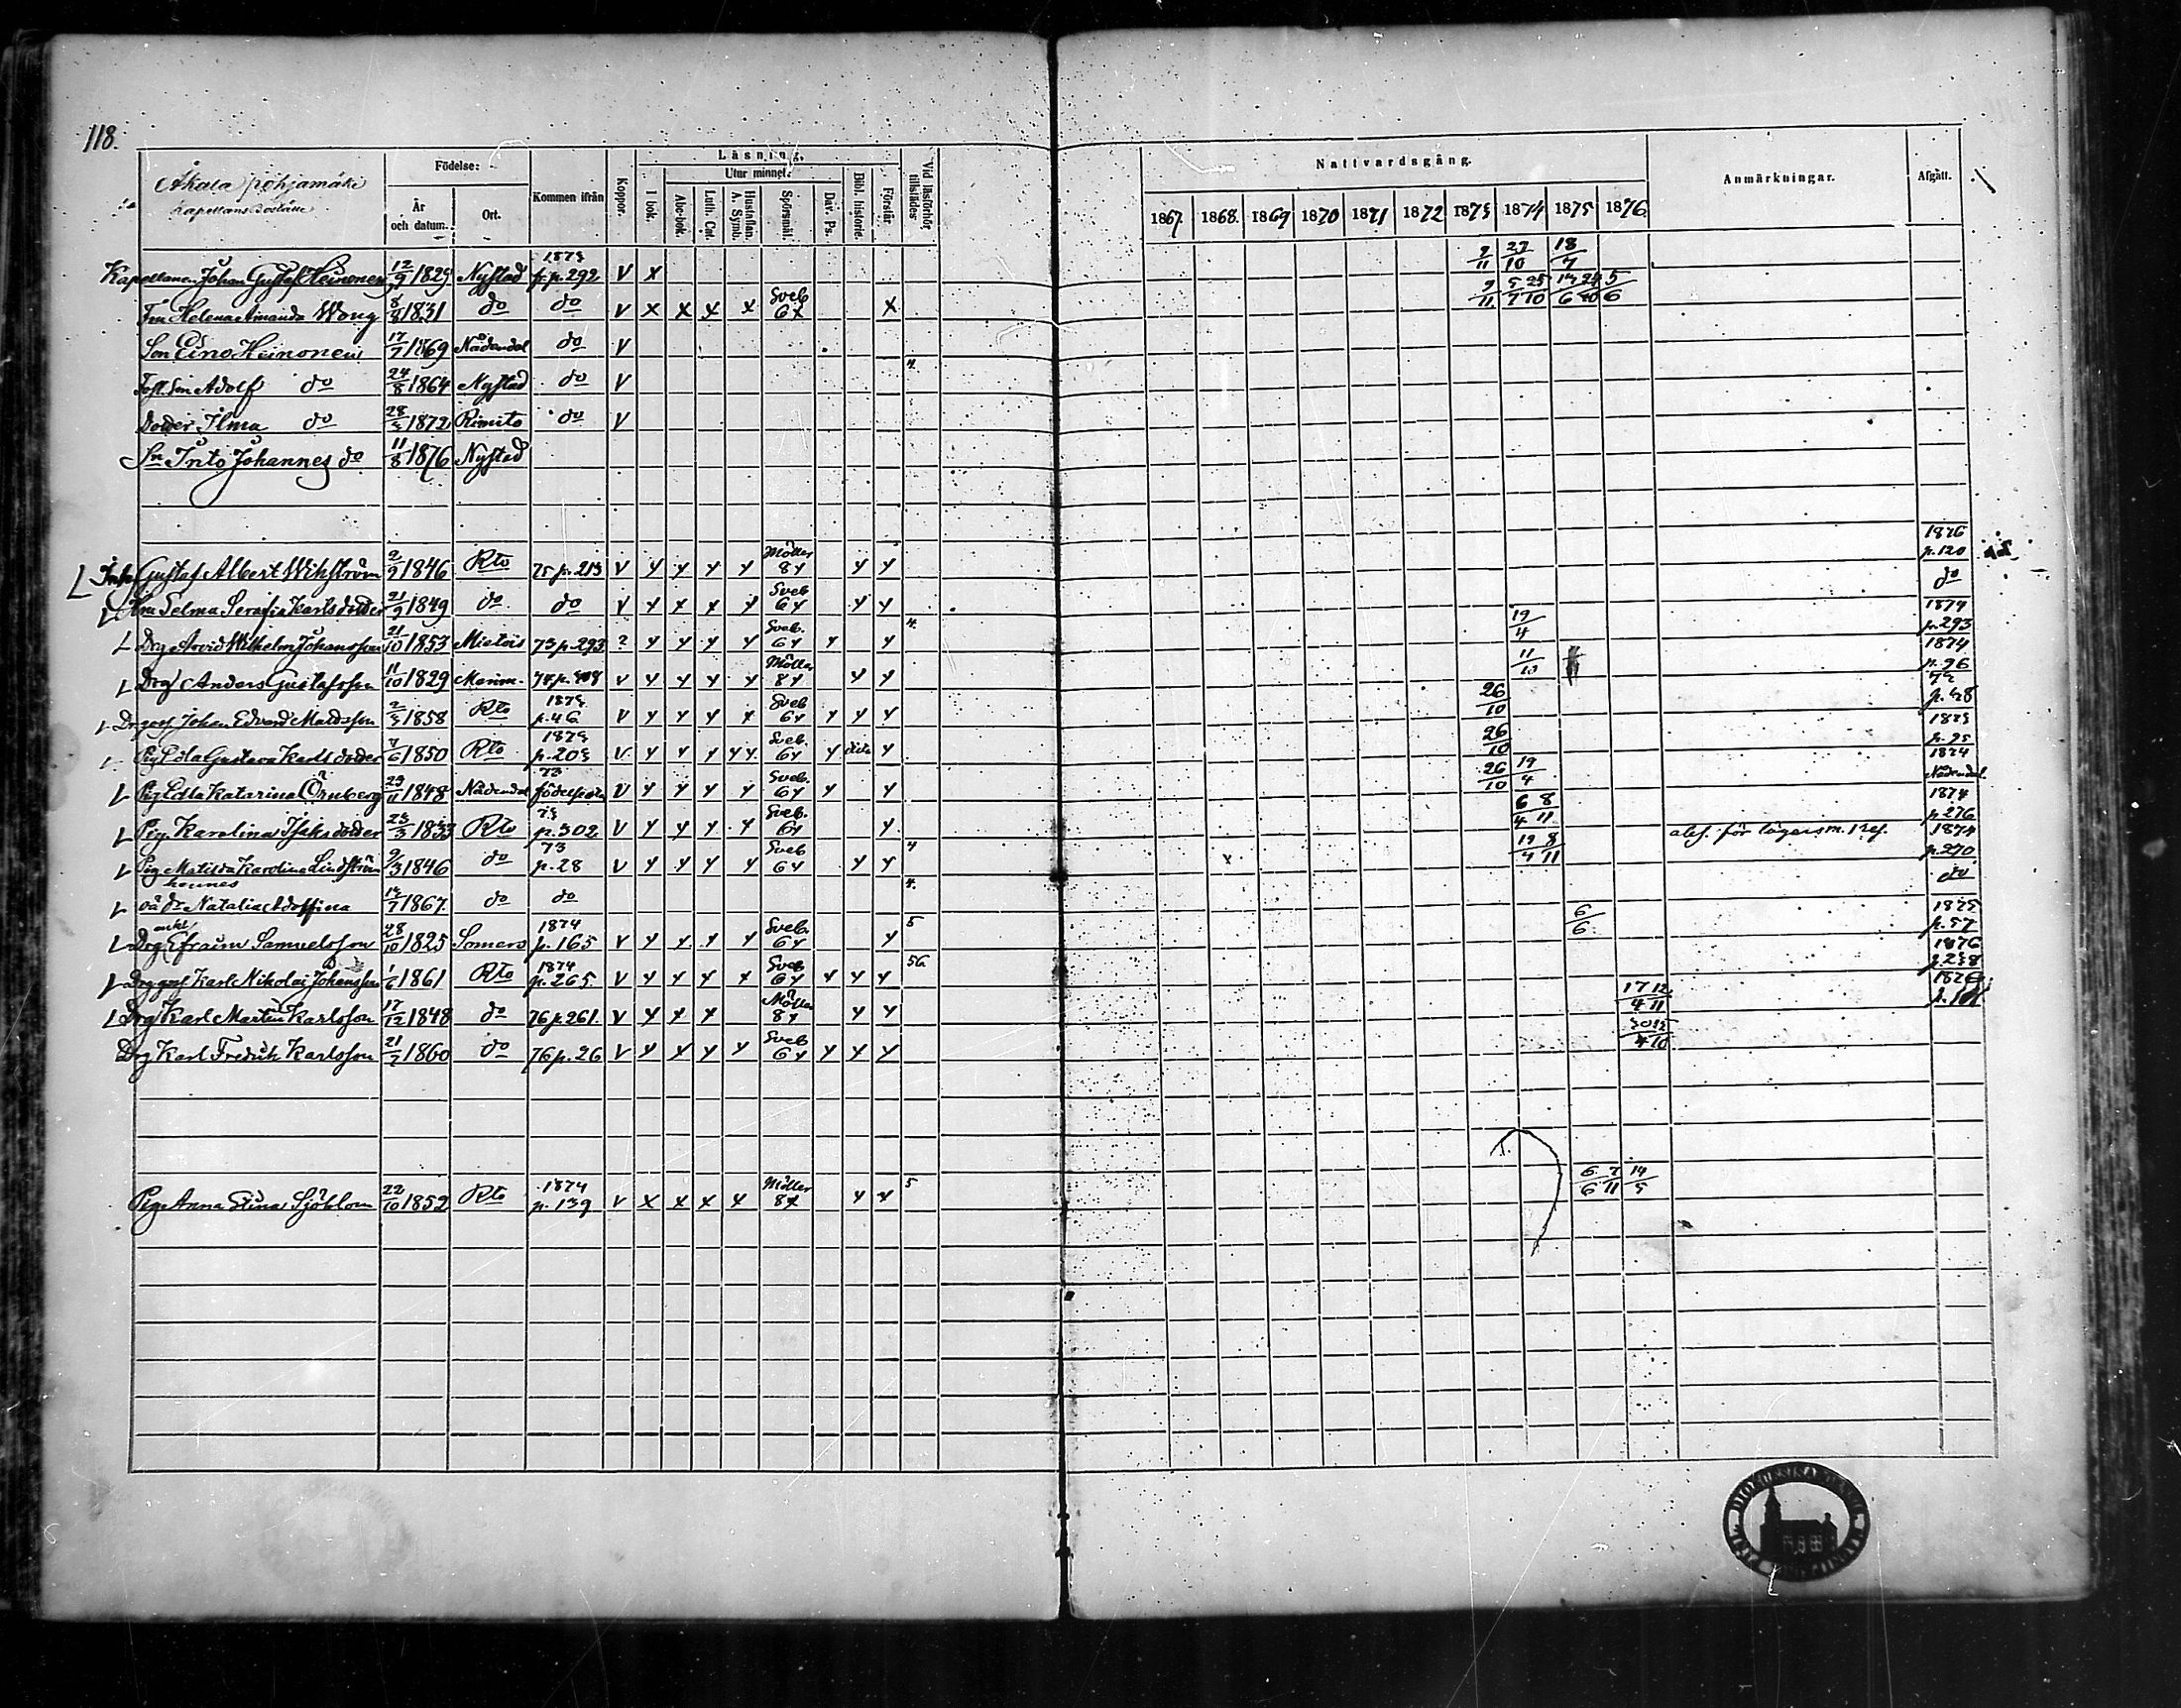 118.
Åkala pohjamäki
Kapellans Boställe
Födelse:
År och datum.
Ort.
Kommen ifrån
Koppor.
Läsning.
I bok.
Utur minnet:
Abc-bok.
Luth. Cat.
Hustaflan. A. Symb.
Spörsmål.
Dav. Ps.
Bibl. historie.
Förstår.
Vid läsförhör tillstädes
Nattvardsgång.
1867. 1868. 1869 1870 1871 1872 1873 1874 1875 1876
Anmärkningar.
Afgått.
Kapellanen Johan Gustaf Heinonen 12/9 1829 Nystad 1873 p. 292 V X 2/11 27/10 18/7
Fru Helena Amanda Wong 8/8 1831 do do V X X X X Sveb 6X X
Son Eino Heinonen 17/7 1869 Nådendal do V
Son Adolf do 24/8 1864 Nystad do V 4
Dotter Ilma do 28/3 1872 Rimito do V
Sn Into Johannes do 11/8 1876 Nystad
Gustaf Albert Wikström 2/9 1846 Rto 75 p. 213 V Y Y Y Y Möller 8Y Y Y 1876 p. 120
Selma Serafia Karlsdotter 21/9 1849 do do V Y Y Y Y Sveb 6Y Y Y do
Drg Arvid Wilhelm Johansson 21/10 1853 Mietois 73 p. 293 ? Y Y Y Y Sveb. 6Y Y Y 4. 19/4 1874 p. 293
Drg Anders Gustafsson 11/10 1829 Mariae V Y Y Y Y Möller 8Y Y Y 1874 p. 96
Johan Edvard Mattsson 2/3 1858 Rto 1873 p. 46 V Y Y Y Y Sveb 6Y Y Y Y 26/10
Pig Edla Gustava Karlsdotter 1850 Rto p. 203 V Y Y Y YY Sveb. 6Y Y Y 26/10 1873 p. 25
Pig Edla Katarina Örnberg 29/11 1848 Nådendal 73 V Y Y Y Y Sveb. 6Y Y Y 26/10 19/4 1874 Nådendal
Pig. Karolina Isaksdotter Rto 73 p. 302 V Y Y Y Y Sveb. 6Y Y 6/4 8/11 1874 p. 276
Pig Matilda Karolina Lindström 9/3 1846 do 73 p. 28 V Y Y Y Y Sveb 6Y Y Y 4 X 19/4 8/11 abs. för lägersm. 1874 p. 270
hennes
oä dr Natalia Adolfina 1867. do do 4. do
enkl
Drg Efraim Samuelsson 28/10 1825 Somero 1874 p. 165 V Y Y Y Y Sveb. 6Y Y 5 6/6 1875 p. 57
Karl Nikolai Johansson 1/6 1861 Rto 1874 p. 265. V Y Y Y Y Sveb 6Y Y Y Y 56 1876 p. 238
Drg Karl Martin Karlsson 17/12 1848 do 76 p. 261. V Y Y Y Möller 8Y Y Y 17/4 12/11 1876
Drg Karl Fredrik Karlsson 21/7 1860 do 76 p. 26 V Y Y Y Y Sveb 6Y Y Y Y
Pig Anna Stina Sjöblom 22/10 1852 Rto 1874 p. 139 V X X X X Möller 8X Y Y 5 6/6 7/11 14/5